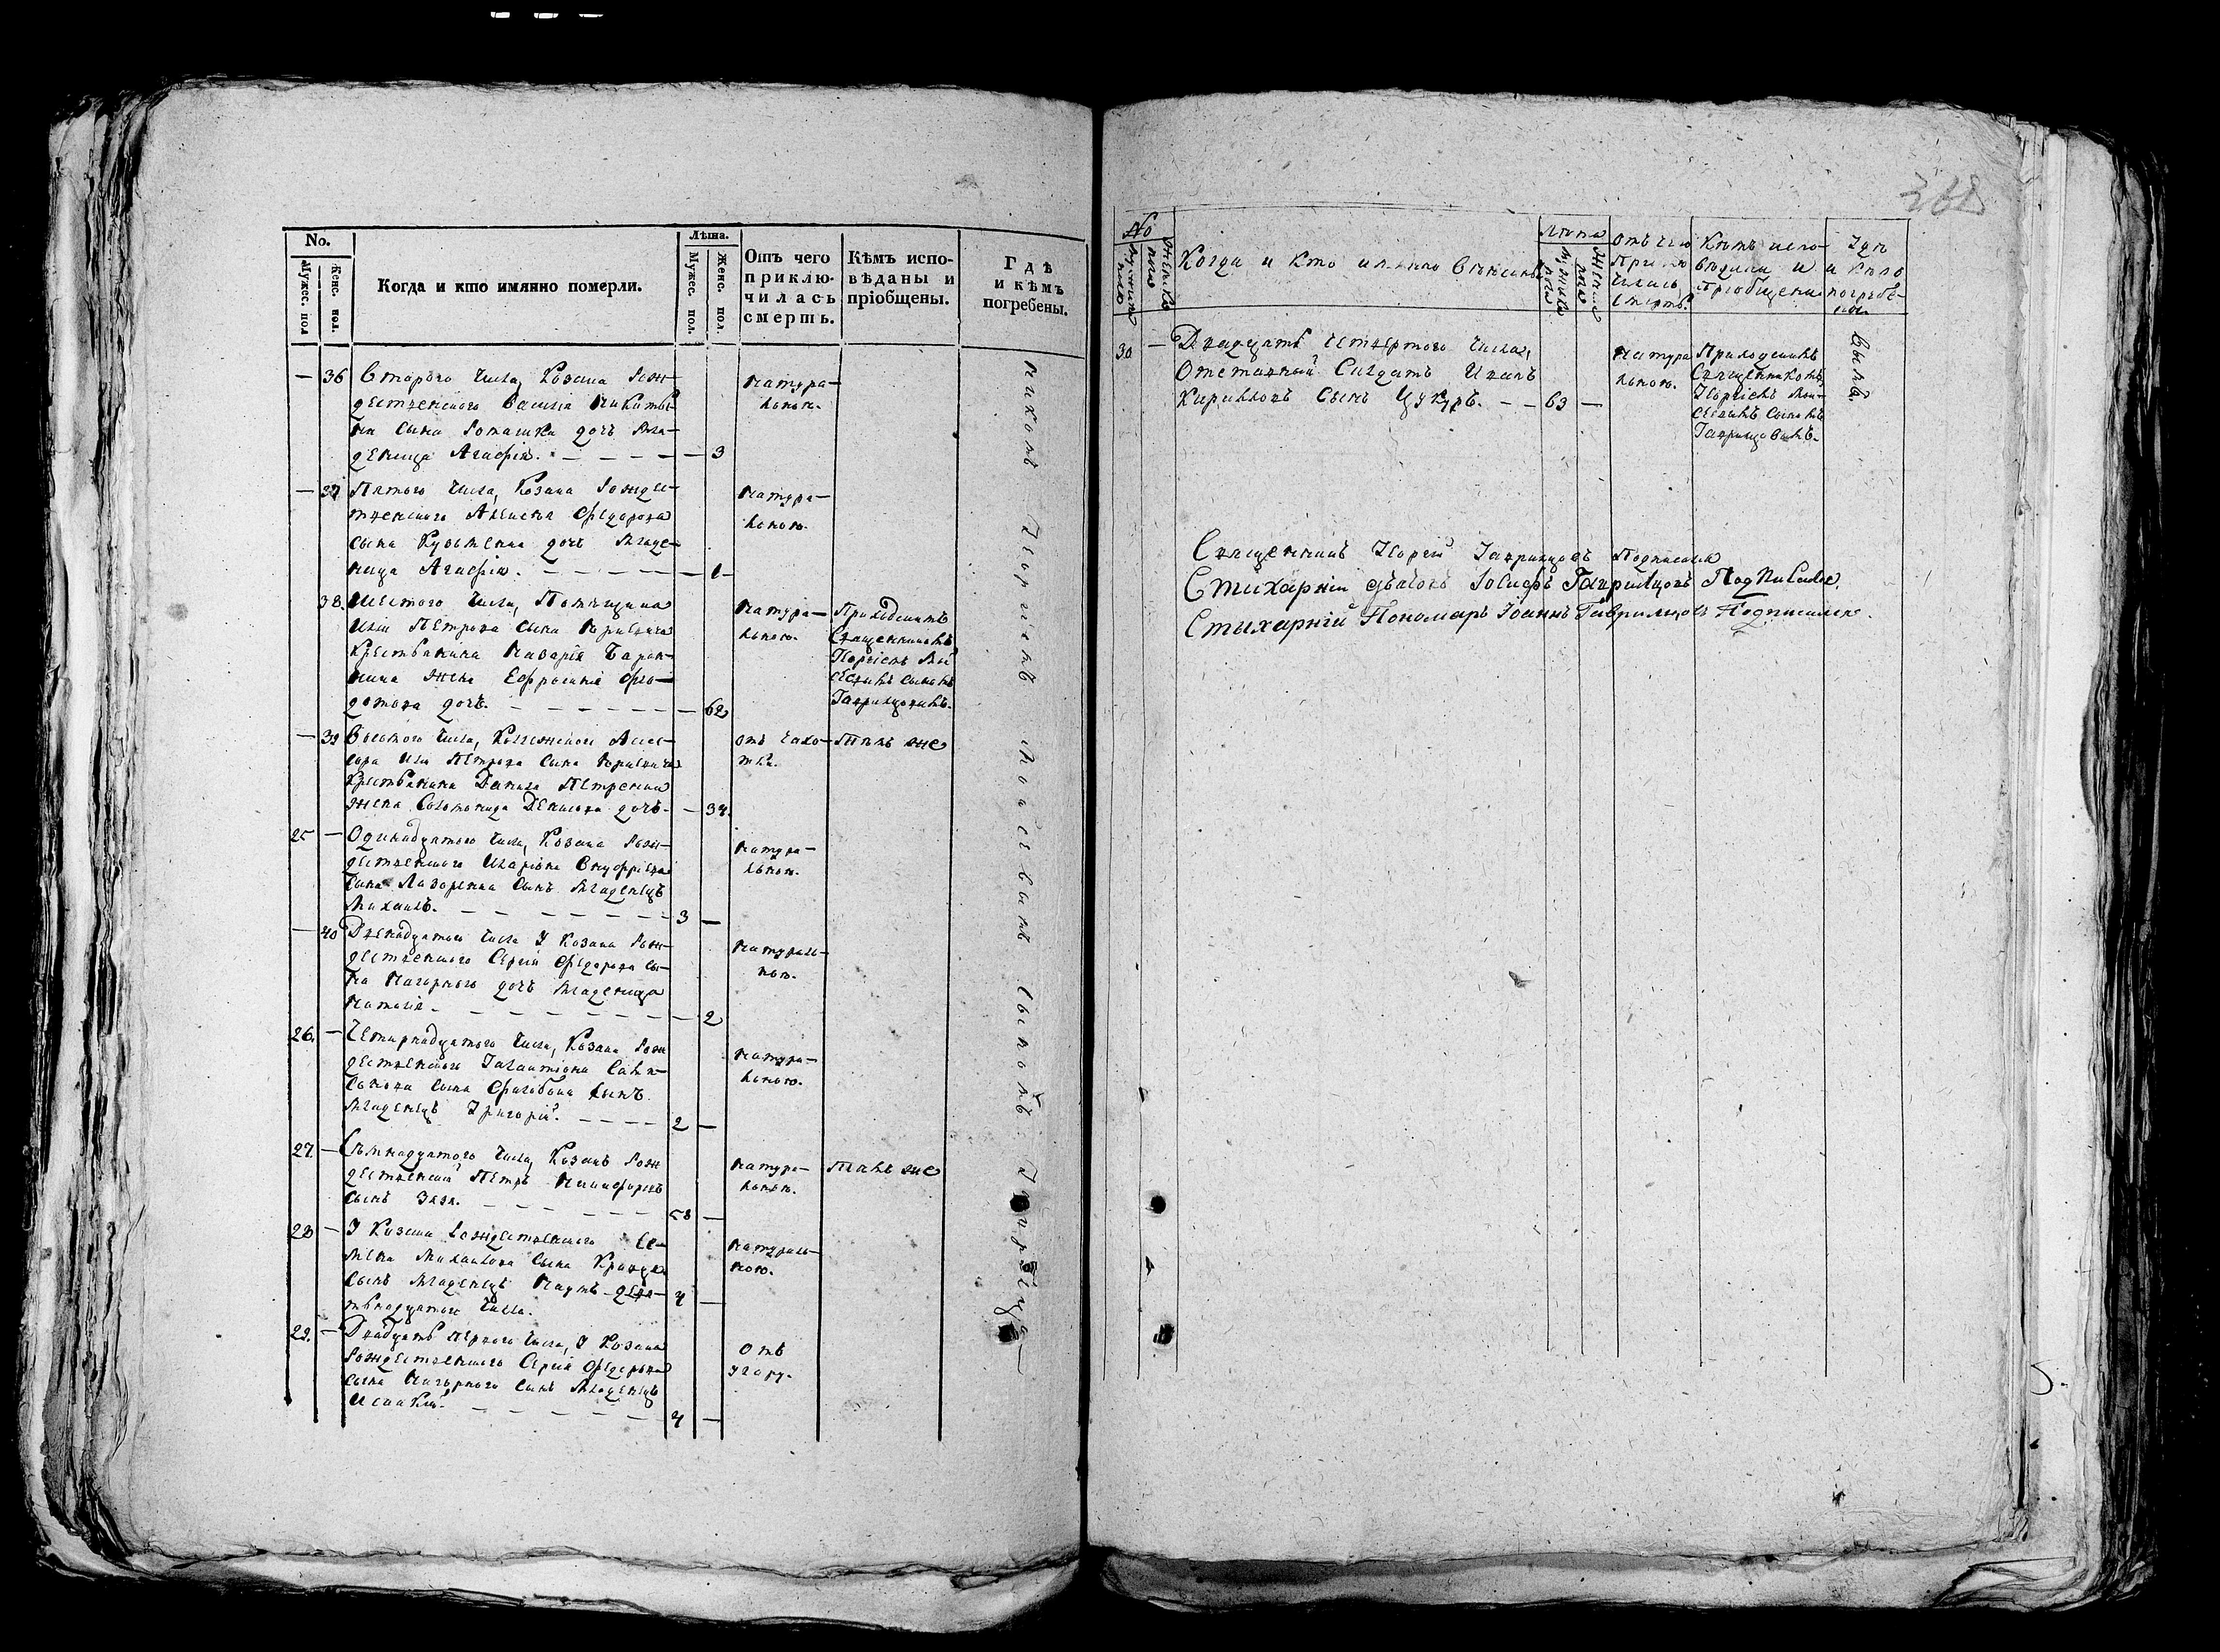 No.
Мужес. пол
Женс. пол.
Когда и кто имянно померли.
Лѣта.
Мужес. пол.
Женс. пол.
Отъ чего
приклю-
чилась
смерть.
Кѣмъ испо-
вѣданы и
пріобщены.
Гдѣ
и кѣмъ
погребены.
— 36 Второго числа, Козака Рож-
дественского Василія Никиты-
на сына Ромашка дочь мла-
деница Агафія. — — — — — — 3
натура-
льною.
— 37 Пятого числа, Козака Рождес-
твенского Алексѣя Федорова
сына Кузменка дочь младе-
ница Агафія. — — — — — — 1
натура-
льною.
38. Шестого числа, Помѣщика
Иліи Петрова сына
крестьянина Назарія
жена Ефросинія Фео-
дотова дочь. — — — — — — 62
натура-
льною.
Приходскимъ
Священникомъ
Георгіемъ Мои-
сеевымъ сыномъ
Гаврищовымъ.
— 39 Восмого числа, Колежского Асес-
сора Иліи Петрова сына
крестьянина Данила Петренка
жена Соломонида Денисова дочь. — 34.
отъ чахо-
тки.
Тѣмъ же
25 — Одинадцятого числа, Козака Рож-
дественского Иларіона Онуфріева
сына Лазоренка сынъ младенецъ
Михаилъ. — — — — — — 3 —
натура-
льною.
— 40 Двенадцятого числа У Козака Рож-
дественского Сергія Федорова сы-
на Нагорного дочь младеница
Наталія — — — — — — — 2
натураль-
ною.
26. — Четырнадцятого числа, Козака Рож
дественского Галактіона
сына сынъ
младенецъ Григорій. — — — — 2 —
натура-
льною.
27. — Семнадцятого числа, Козакъ Рож
дественскій Петръ Никифоровъ
сынъ — — — — — — 58 —
натура-
льною.
Тѣмъ же
28 — У Козака Рождественского Се-
мена Михайлова сына
сынъ младенецъ Наумъ девя- 4 —
тьнадцятого числа.
натураль-
ною.
29. — Двадцять первого числа, У Козака
Рождественского Сергія Федорова
сына Нагорного сынъ младенецъ
Исаакій. — — — — — — 4 —
Отъ
угару.
никомъ Георгіемъ Моисеевымъ сыномъ Гаврищо—
No
мужеска пола
женска пола
Когда и кто именно
Лѣта
мужеска пола
женска пола
отъ чего
приклю
чилась
смерть.
Кѣмъ испо-
вѣданы и
пріобщены
Гдѣ
и кѣмъ
погребе-
ны.
30 — Двадцять четвертого числа,
Отставный Солдатъ Иванъ
Кириловъ сынъ Цукуръ. — — 63 —
натура
льною.
Приходскимъ
Священникомъ
Георгіемъ Мои-
сеевымъ сыномъ
Гаврищовымъ.
вымъ.
Священникъ Георгій Гаврищовъ подписался
Стихарній дьячокъ Іосифъ Гаврищовъ Подписался.
Стыхарній Пономарь Іоаннъ Гаврищовъ Подписался.